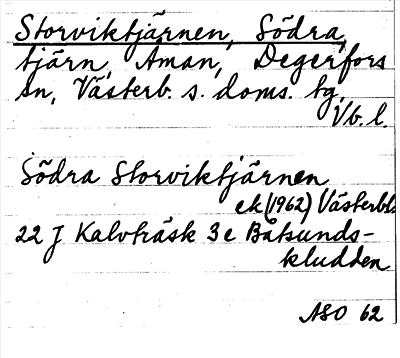 Storviktjärnen, Södra,
tjärn, Åman, Degerfors
sn, Västerb. s. doms. tg,
Vb. l.
Södra Storviktjärnen
ek (1962) Västerb.
22 J Kalvträsk 3e Båtsunds-
kludden
ASO 62